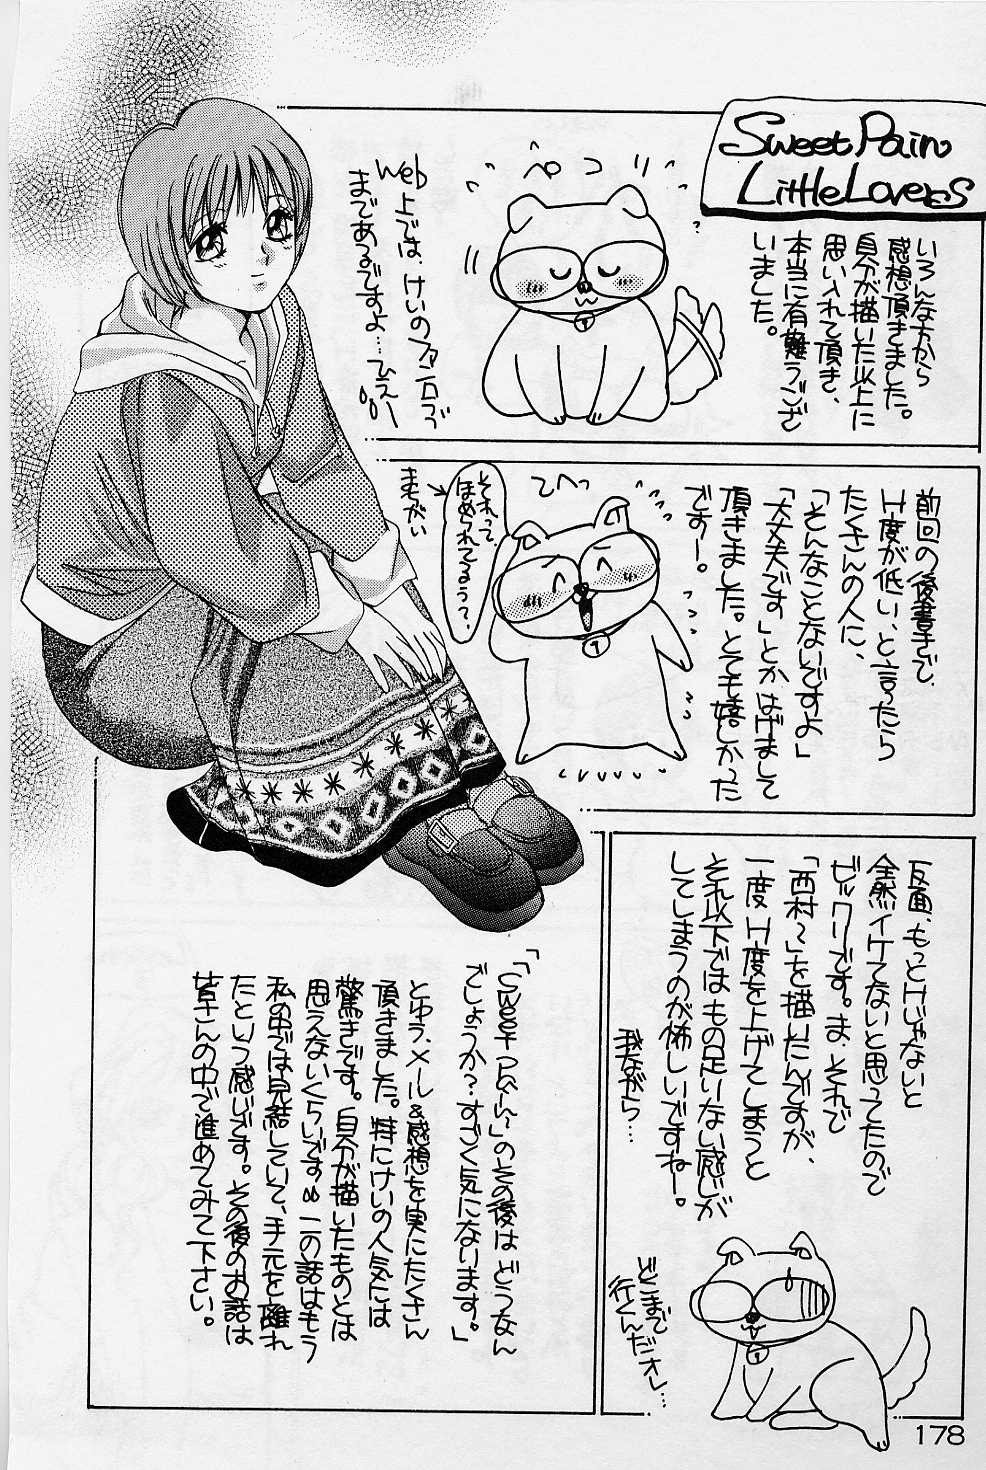 Sweet Pain
Little Lovers
いろんな方から
感想頂きました。
自分が描いた以上に
思い入れて頂き、
本当に有難うござ
いました。
ペコリ
Web上では、けいのファン石づ
まであるですよ…ひえー
前回の後書きで、
H度が低い、と言ったら
たくさんの人に、
「そんなことないですよ」
「大丈夫です」とかはげまして
頂きました。とても嬉しかった
ですー。
てへっ
それって、
ほめられてるぅ?
まちがい
反面、もっとHじゃないと
全然イケてないと思ってたので
ビックリです。ま、それで
「西村~」を描いたんですが、
一度H度を上げてしまうと
それ以下ではもの足りない感じが
してしまうのが怖しいですねー。
我ながら…
どこまで
行くんだオレ…
「「Sweet Pain~」のその後はどうなん
でしょうか?すごく気になります。」
とゆう、メール&感想を実にたくさん
頂きました。特にけいの人気には
驚きです。自分が描いたものとは
思えないくらいです この話はもう
私の中では完結していて、手元を離れ
たという感じです。その後のお話は
皆さんの中で進めてみて下さい。
178